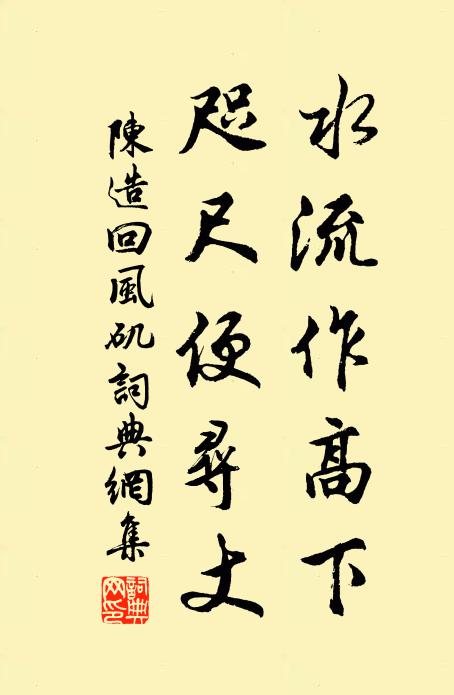 水流作高下
咫尺便尋丈
陳造回風矶詞典網集
詞典網印